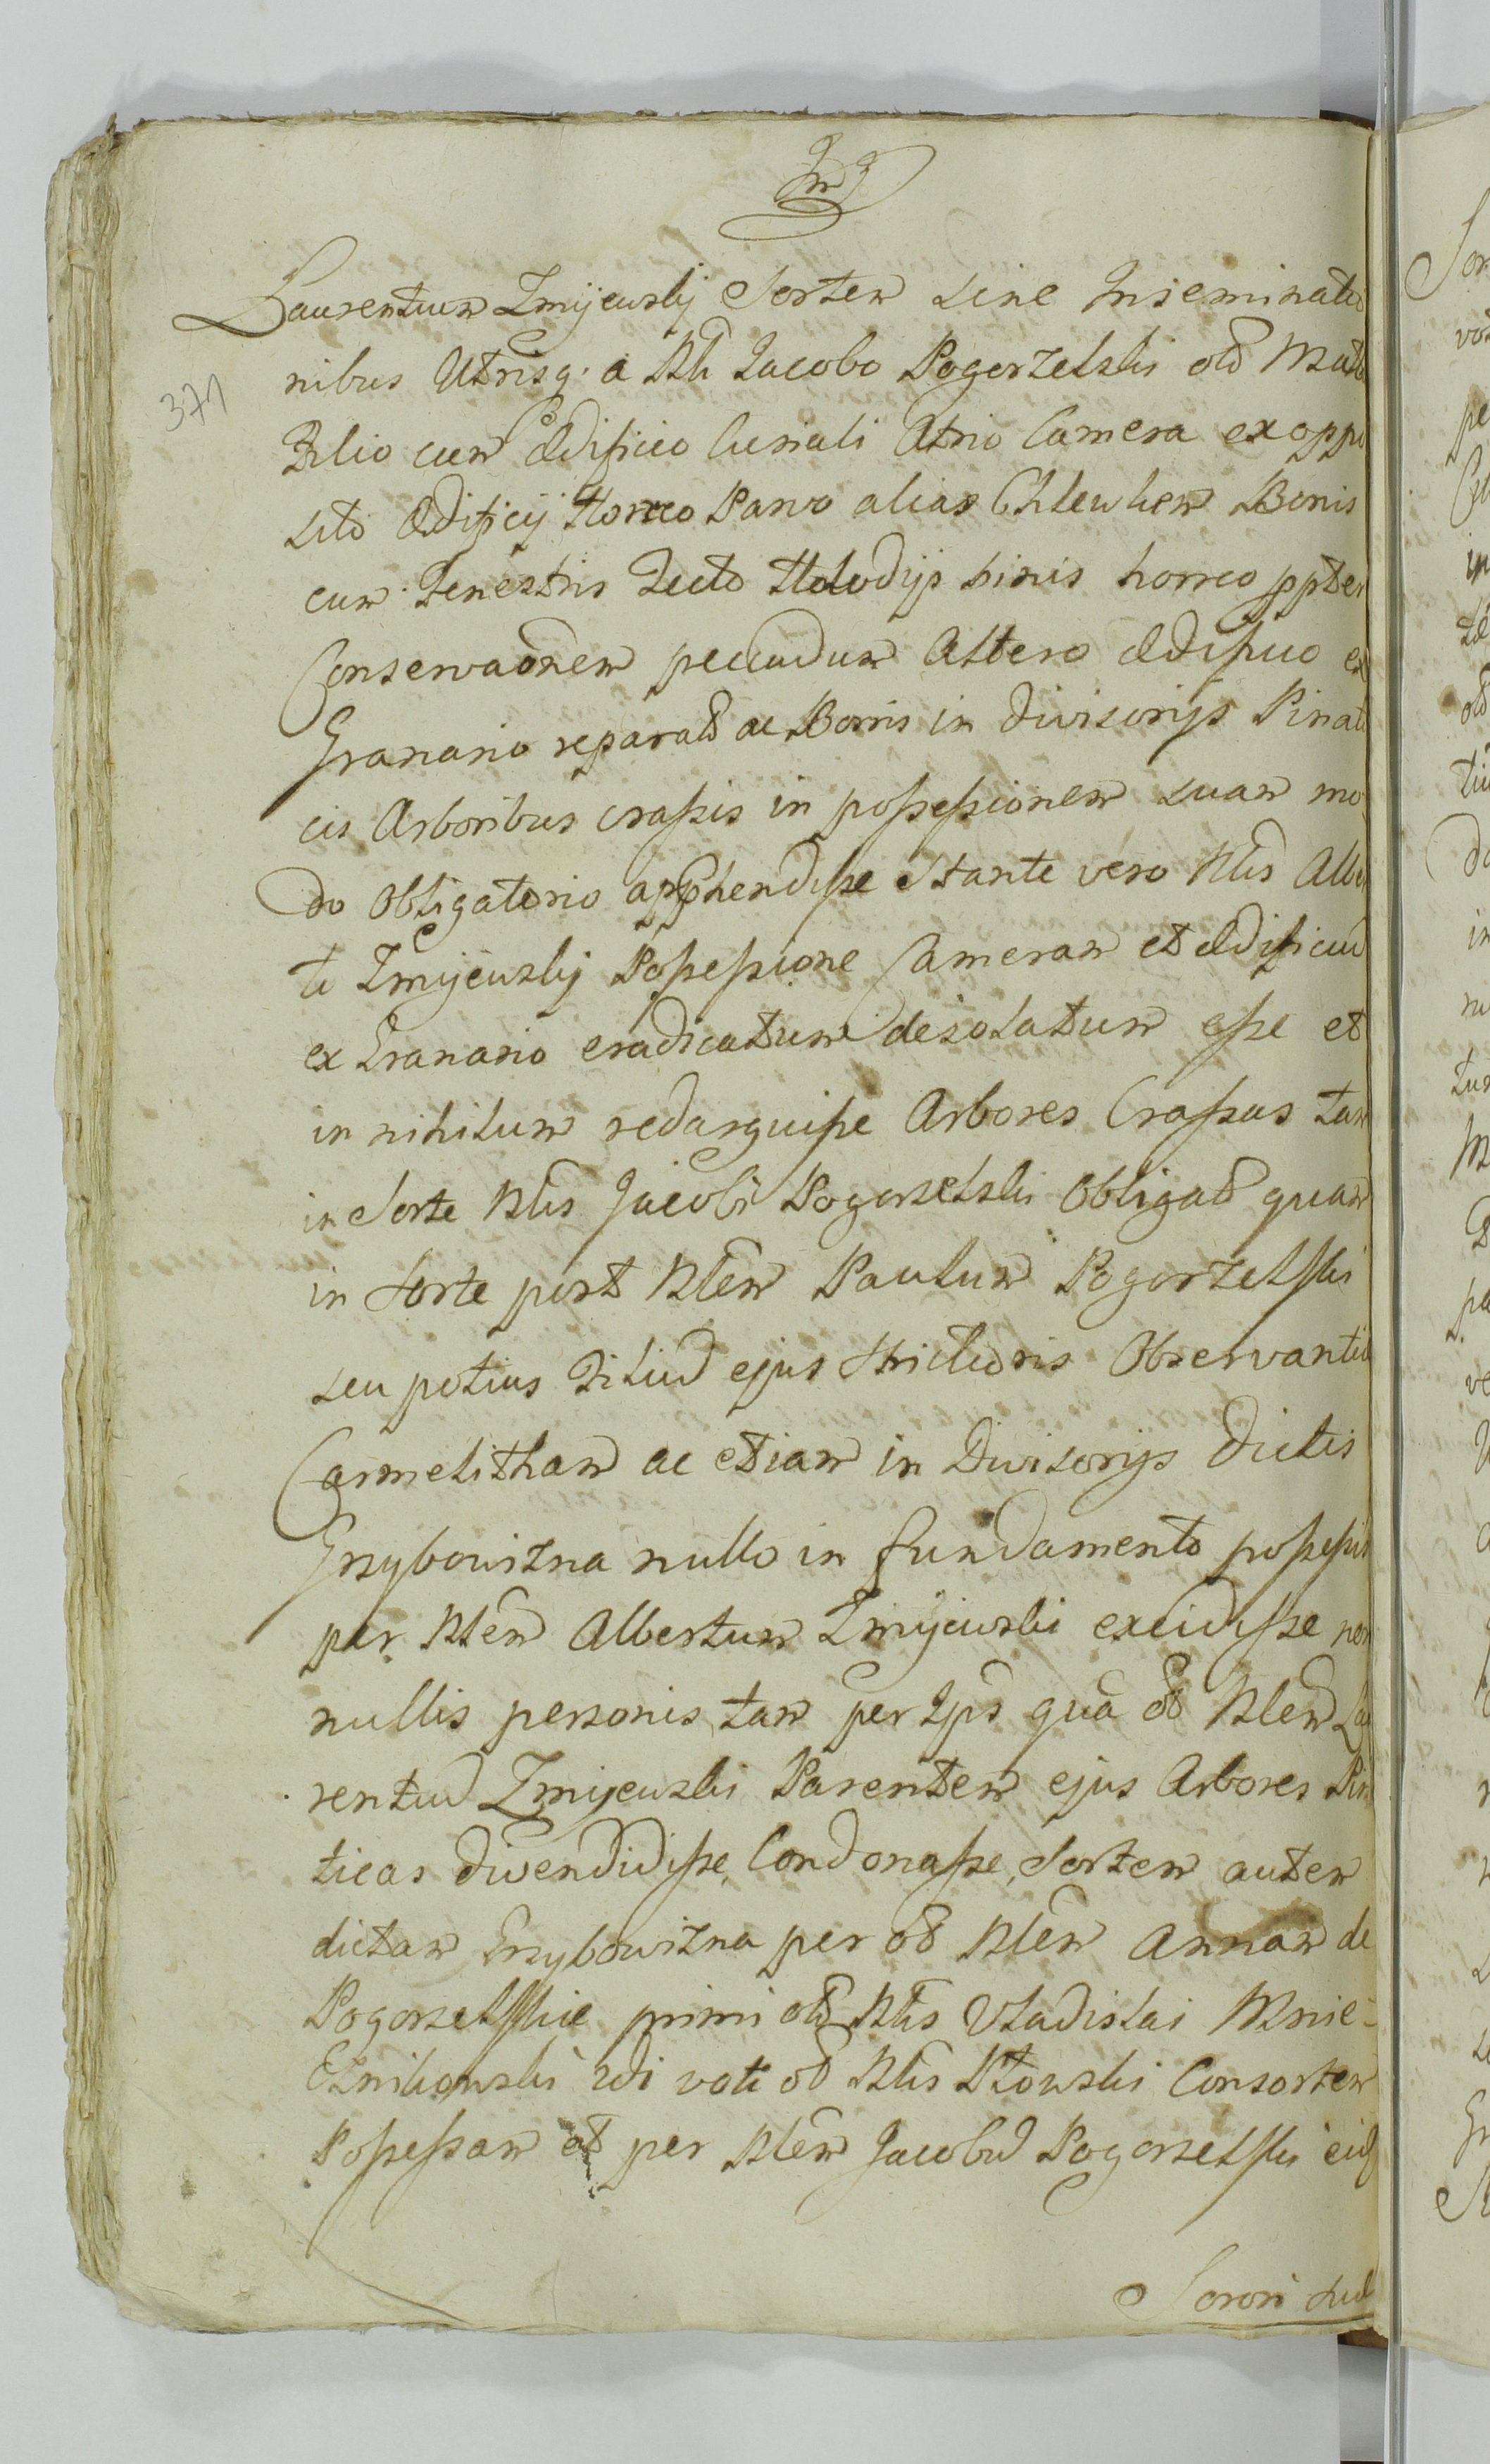 371
Laurentium Zmijewskij Sortem sine Inseminatio
nibus Utrisq. a Nli Jacobo Pogorzelski olb Matth
Filio cum Ædificio Curiali Atrio Camera ex oppo
sito Ædificij Horreo Parvo alias Chlewkem Bonis
cum Fenestris Tecto binis horreo ppter
Conservaonem pecudum Altero Ædificio ex
Granario reparato ac Bonis in divisorijs Pinat
cis Arboribus crassis in possessionem suam mo
do Obligatorio appraehendisse Stante vero Nlis Alber
ti Zmijewskij Possessione Cameram et Ædificiu
ex Granario eradicatum desolatum esse et
in nihilum redarguisse Arbores Crassas tam
in Sorte Nlis Jacobi Pogorzelski Obligat quam
in Sorte post Nlem Paulum Pogorzelski
seu potius Filiu ejus Strictioris Observantiæ
Carmelitham ac etiam in Divisorijs dictis
Grzybowizna nullo in fundamento possessis
per Nlem Albertum Zmijewski excidisse non
nullis personis tam per Ips quā ob Nlem Lau
rentiu Zmijewski Parentem ejus Arbores Pin
ticas divendidisse, Condonasse, Sortem autem
dictam Grzybowizna per ob Nlem Annam de
Pogorzelskie primi olb Nlis Vladislai Mnie-
2di voti ob Nlis Consortem
Possessam et per Nlem Jacobu Pogorzelski eid
Sorori suæ